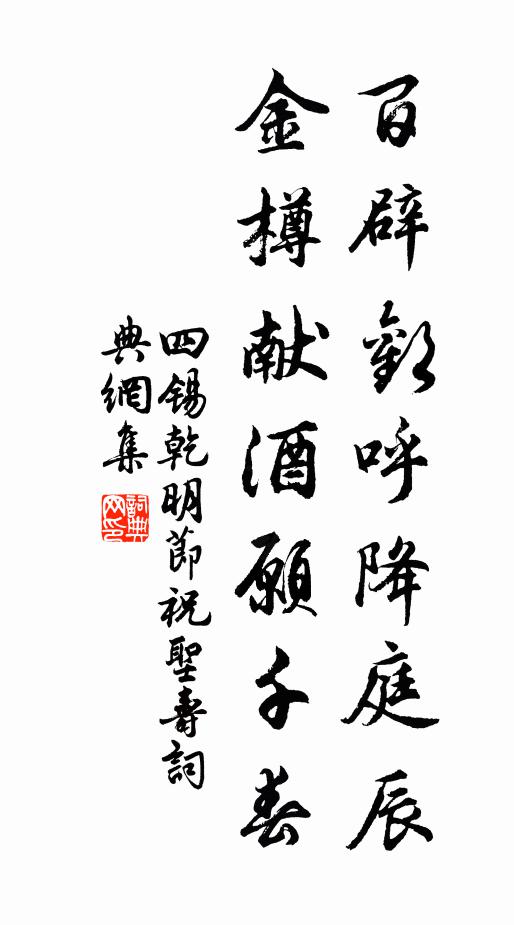 百辟歡呼降庭辰
金樽献酒願千春
四錫乾明節祝聖壽詞
典網集
詞典網印